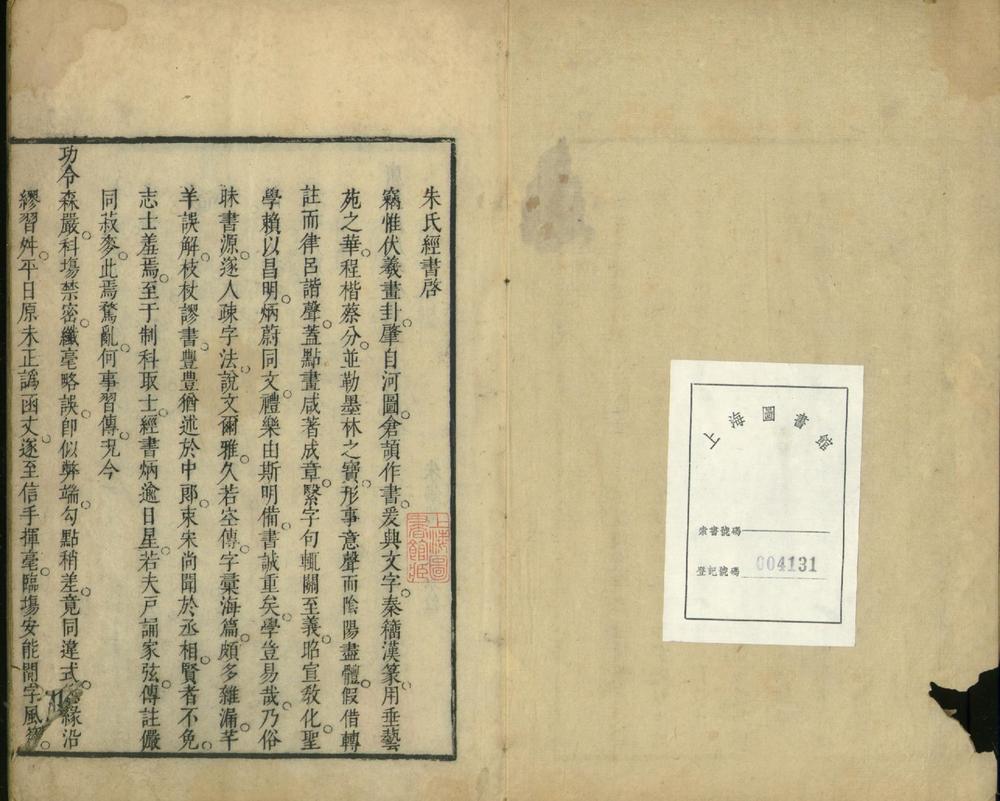 上海圖書館
索書號碼
登記號碼 004131
朱氏經書啓
竊惟伏羲畫卦肇自河圖倉頡作書爰興文字秦籀漢篆用垂藝
苑之華程楷蔡分並勒墨林之寶形事意聲而陰陽盡體假借轉
註而律呂諧聲蓋點畫咸著成章緊字句輒關至義昭宣敎化聖
學賴以昌明炳蔚同文禮樂由斯明備書誠重矣學豈易哉乃俗
昧書源遂人疎字法說文爾雅久若空傳字彙海篇頗多雜漏芊
羊誤解枝杖謬書豐豊猶述於中郞束宋尚聞於丞相賢者不免
志士羞焉至于制科取士經書炳逾日星若夫戸誦家弦傳註儼
同菽麥此焉騖亂何事習傳况今
功令森嚴科塲禁密纖毫略誤卽似弊端勾點稍差竟同違式緣沿
繆習舛平日原未正譌函丈遂至信手揮毫臨塲安能閒字風
上海圖書館藏